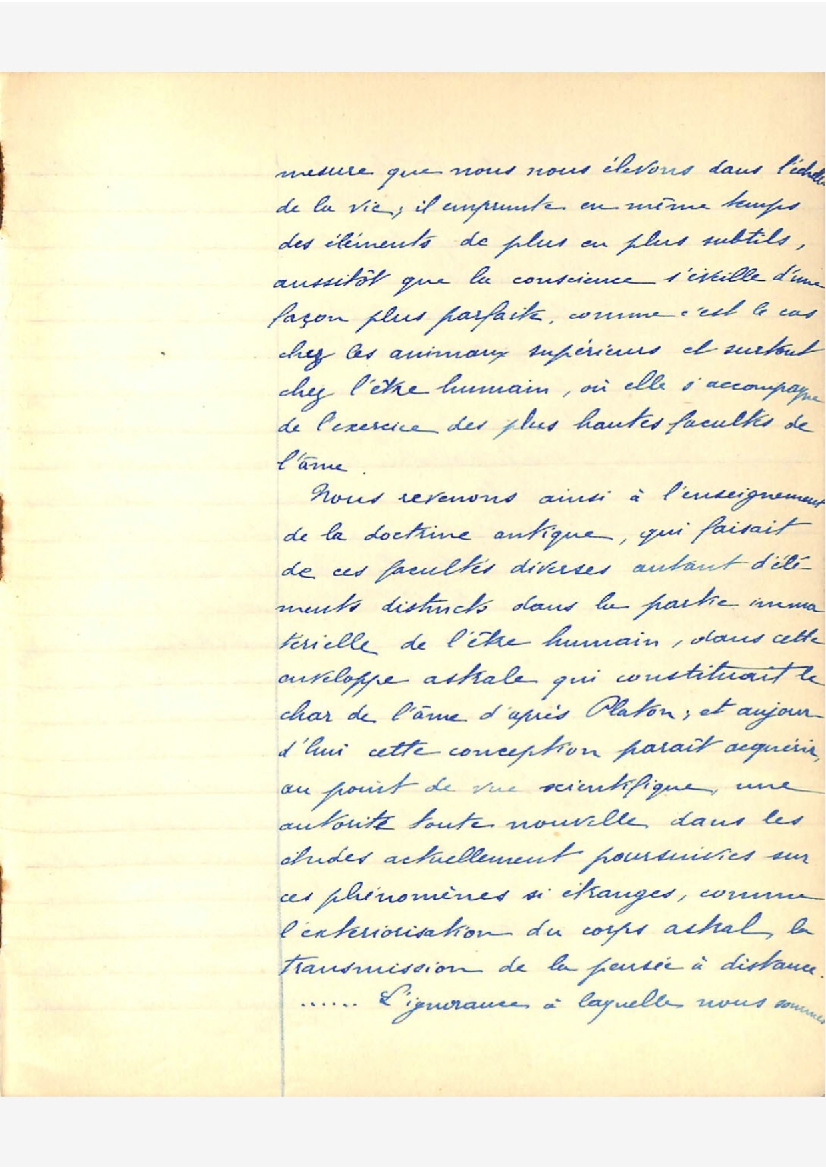 mesure que nous nous élevons dans l'échelle
de la vie; il emprunte en même temps
des éléments de plus en plus subtils,
aussitôt que la conscience s'éveille d'une
façon plus parfaite, comme c'est le cas
chez les animaux supérieurs et surtout
chez l'être humain, où elle s'accompagne
de l'exercice des plus hautes facultés de
l'âme.
Nous revenons ainsi à l'enseignement
de la doctrine antique, qui faisait
de ces facultés diverses autant d'élé-
ments distincts dans la partie imma
térielle de l'être humain, dans cette
enveloppe astrale qui constituait le
char de l'âme d'après Platon; et aujour-
d'hui cette conception paraît acquérir,
au point de vue scientifique, une
autorité toute nouvelle dans les
études actuellement poursuivies sur
ces phénomènes si étranges, comme
l'extériorisation du corps astral, la
transmission de la pensée à distance.
...... L'ignorance à laquelle nous sommes